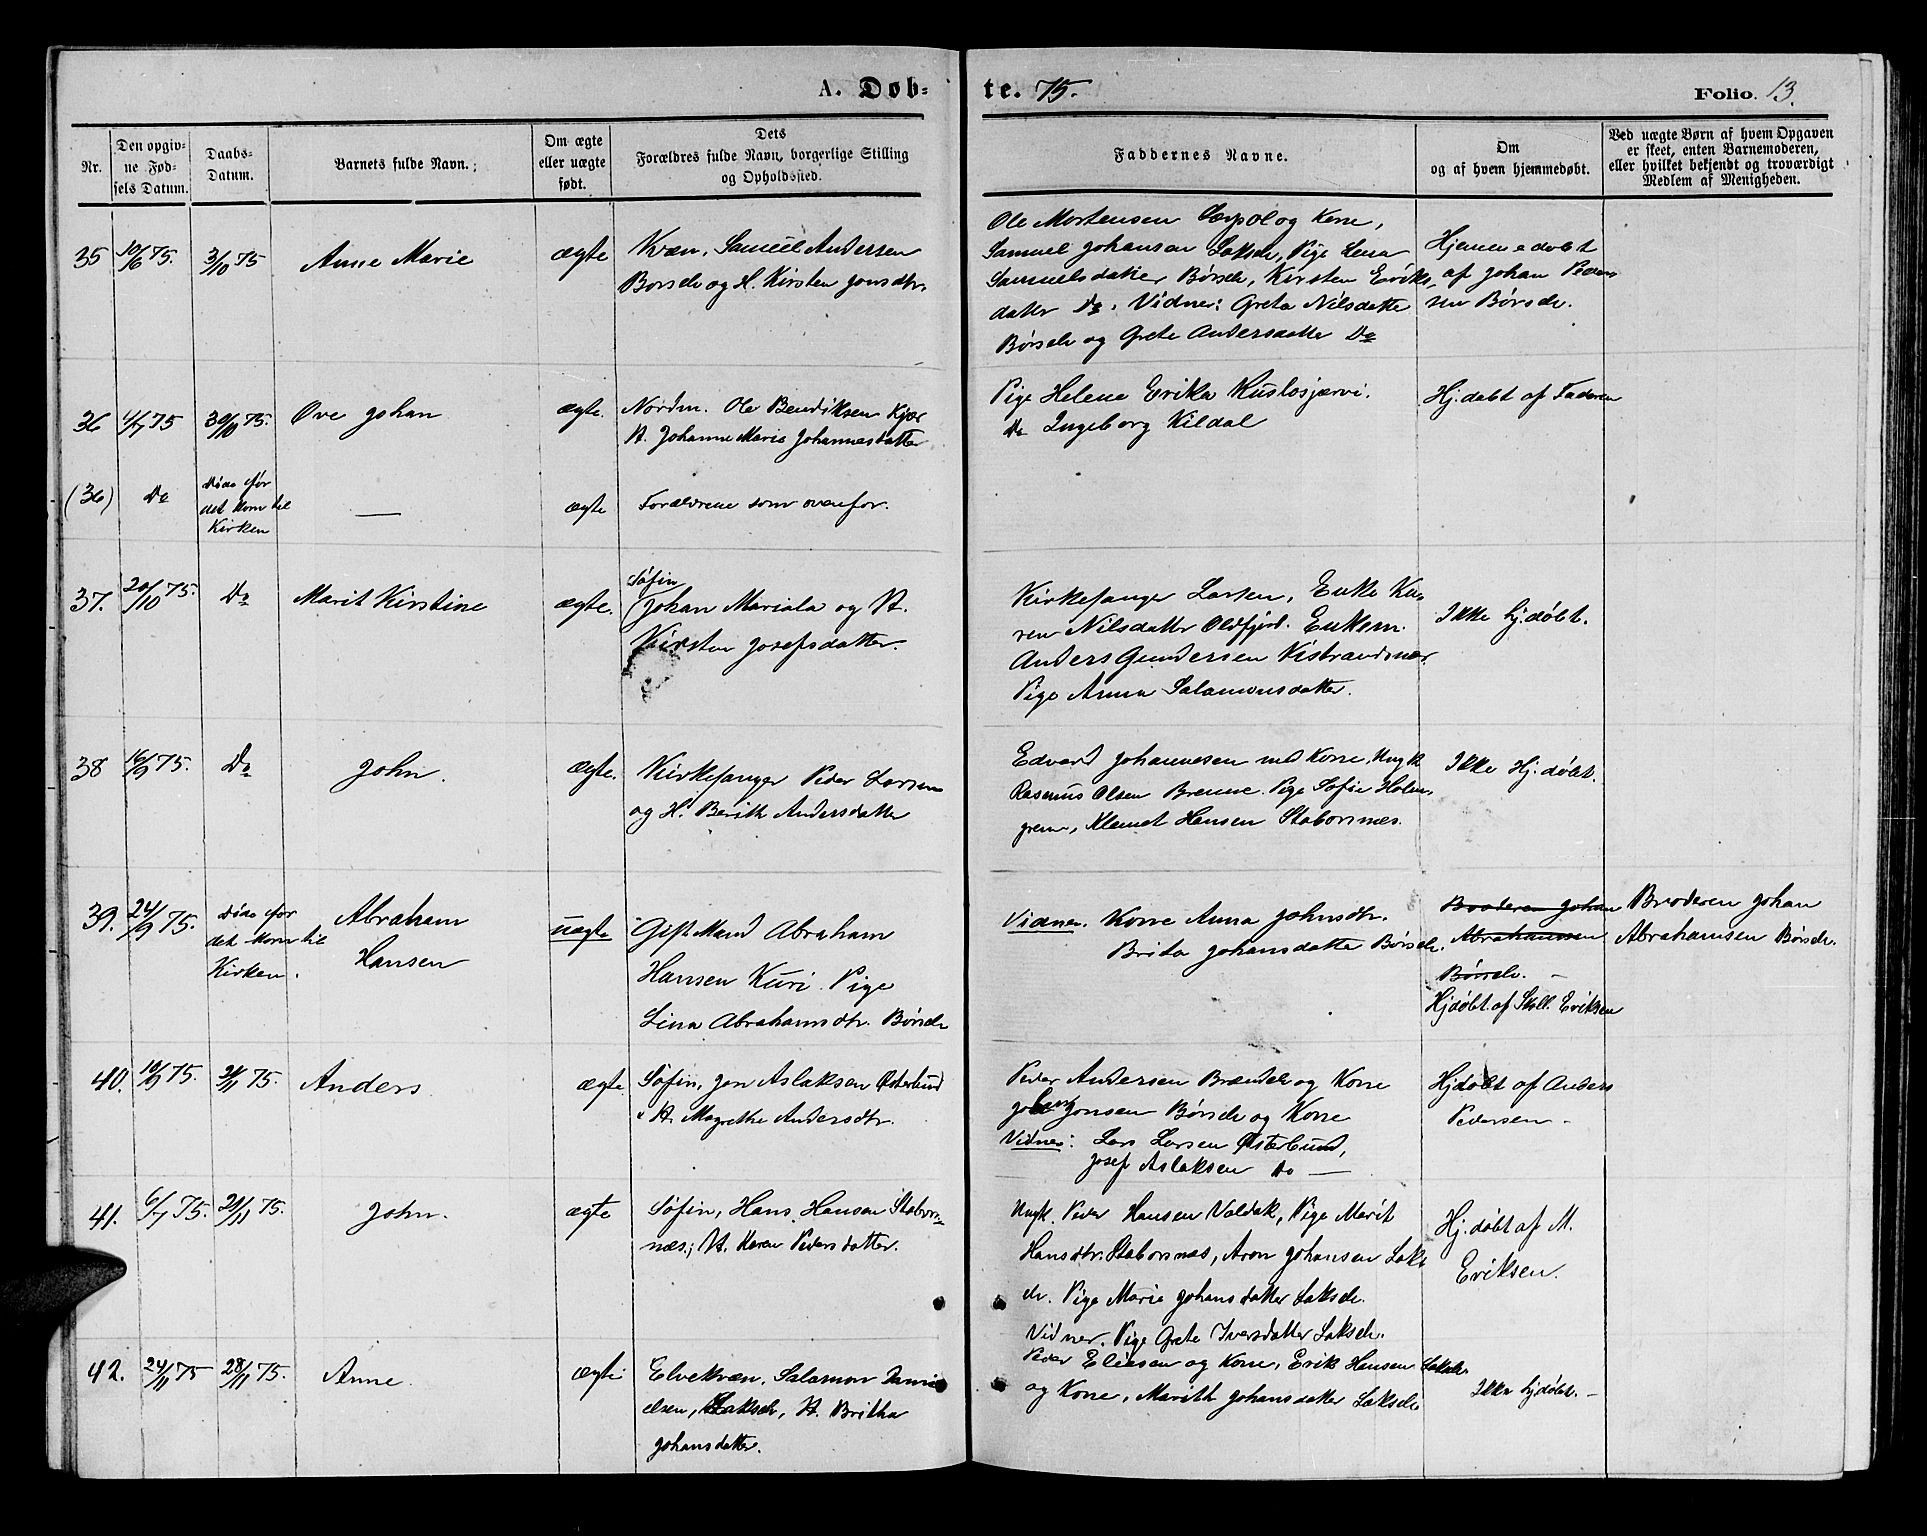 A. Døb=
te. 75.
Folio. 13.
Nr.
Den opgiv-
ne Fød-
sels Datum.
Daabs-
Datum.
Barnets fulde Navn.
Om ægte
eller uægte
født.
Dets
Forældres fulde Navn, borgerlige Stilling
og Opholdssted.
Faddernes Navne.
Om
og af hvem hjemmedøbt.
Ved uægte Børn af hvem Opgaven
er skeet, enten Barnemoderen,
eller hvilket bekjendt og troværdigt
Medlem af Menigheden.
35
10/6 75.
3/10 75
Anne Marie
ægte
Kvæn, Samuel Andersen
Børselv og H. Kirsten Jonsdtr.
Ole Mortensen og Kone,
Samuel Johansen Lakselv, Pige Lena
Samuelsdatter Børselv, Kirsten Eriks,
datter Do. Vidner: Greta Nilsdatte
Børselv og Grete Andersdatte Do
Hjemmedøbt
af Johan Peder
sen Børselv.
36
4/7 75
30/10 75.
Ove Johan
ægte.
Nordm. Ole Bendiksen Kjær
H. Johanne Marie Johannesdatter
Pige Helene Erika
Do Ingeborg Kildal
Hj.døbt af Faderen
(36)
Do
Døde før
det kom til
Kirken
—
ægte
Forældrene som ovenfor.
37.
20/10 75.
Do
Marit Kirstine
ægte.
Søfin
(Johan Mariala og H.
Kirsten Josefsdatter.
Kirkesanger Larsen, Enke Ka-
ren Nilsdatter Oldfjord. Enkem.
Anders Gundersen
Pige Anna Salamonsdatter.
Ikke hj.døbt.
38
16/9 75.
Do
John.
ægte.
Kirkesanger Peder Larsen
og H. Berith Andersdatter
Edvard Johannesen med Kone, Ungk.
Rasmus Olsen Brenne. Pige Sofie Holm,
gren, Klemet Hansen Staborsnæs.
Ikke Hj.døbt.
39.
24/9 75.
Døde før
det kom til
Kirken.
Abraham
Hansen
uægte
Gift Mand Abraham
Hansen Kuri. Pige
Lina Abrahamsdtr. Børselv
Vidner. Kone Anna Johnsdtr.
Brita Johansdatte Børselv.
Broderen Johan
Abrahamsen
Børselv. —
Hjdøbt af Skoll. Eriksen
Broderen Johan
Abrahamsen Børselv.
40.
10/9 75.
21/11 75.
Anders
ægte
Søfin, Jon Aslaksen Østerbund
H. Magrethe Andersdtr.
Peder Andersen Brændelv og Kone
Jonsen Børselv og Kone
Vidner: Lars Larsen Østerbund,
Josef Aslaksen Do —
Hjdøbt af Anders
Pedersen —
41.
6/7 75.
21/11 75.
John.
ægte
Søfin, Hans Hansen Stabors=
næs; H. Karen Pedersdatter.
Ungk. Peder Hansen Valdak, Pige Marit
Hansdtr. Staborsnæs, Aron Johansen Laks
elv. Pige Marie Johansdatter Lakselv.
Vidner. Pige Grete Iversdatter Lakselv.
Hj.døbt af M.
Eriksen.
42.
24/11 75
28/11 75.
Anne.
ægte
Elvekvæn. Salamon Dani
elsen, Lakselv, H. Britha
Johansdatter.
Peder Eliesen og Kone, Erik Hansen Lakselv.
og Kone, Marith Johansdatter Lakselv
Ikke hjdøbt. —